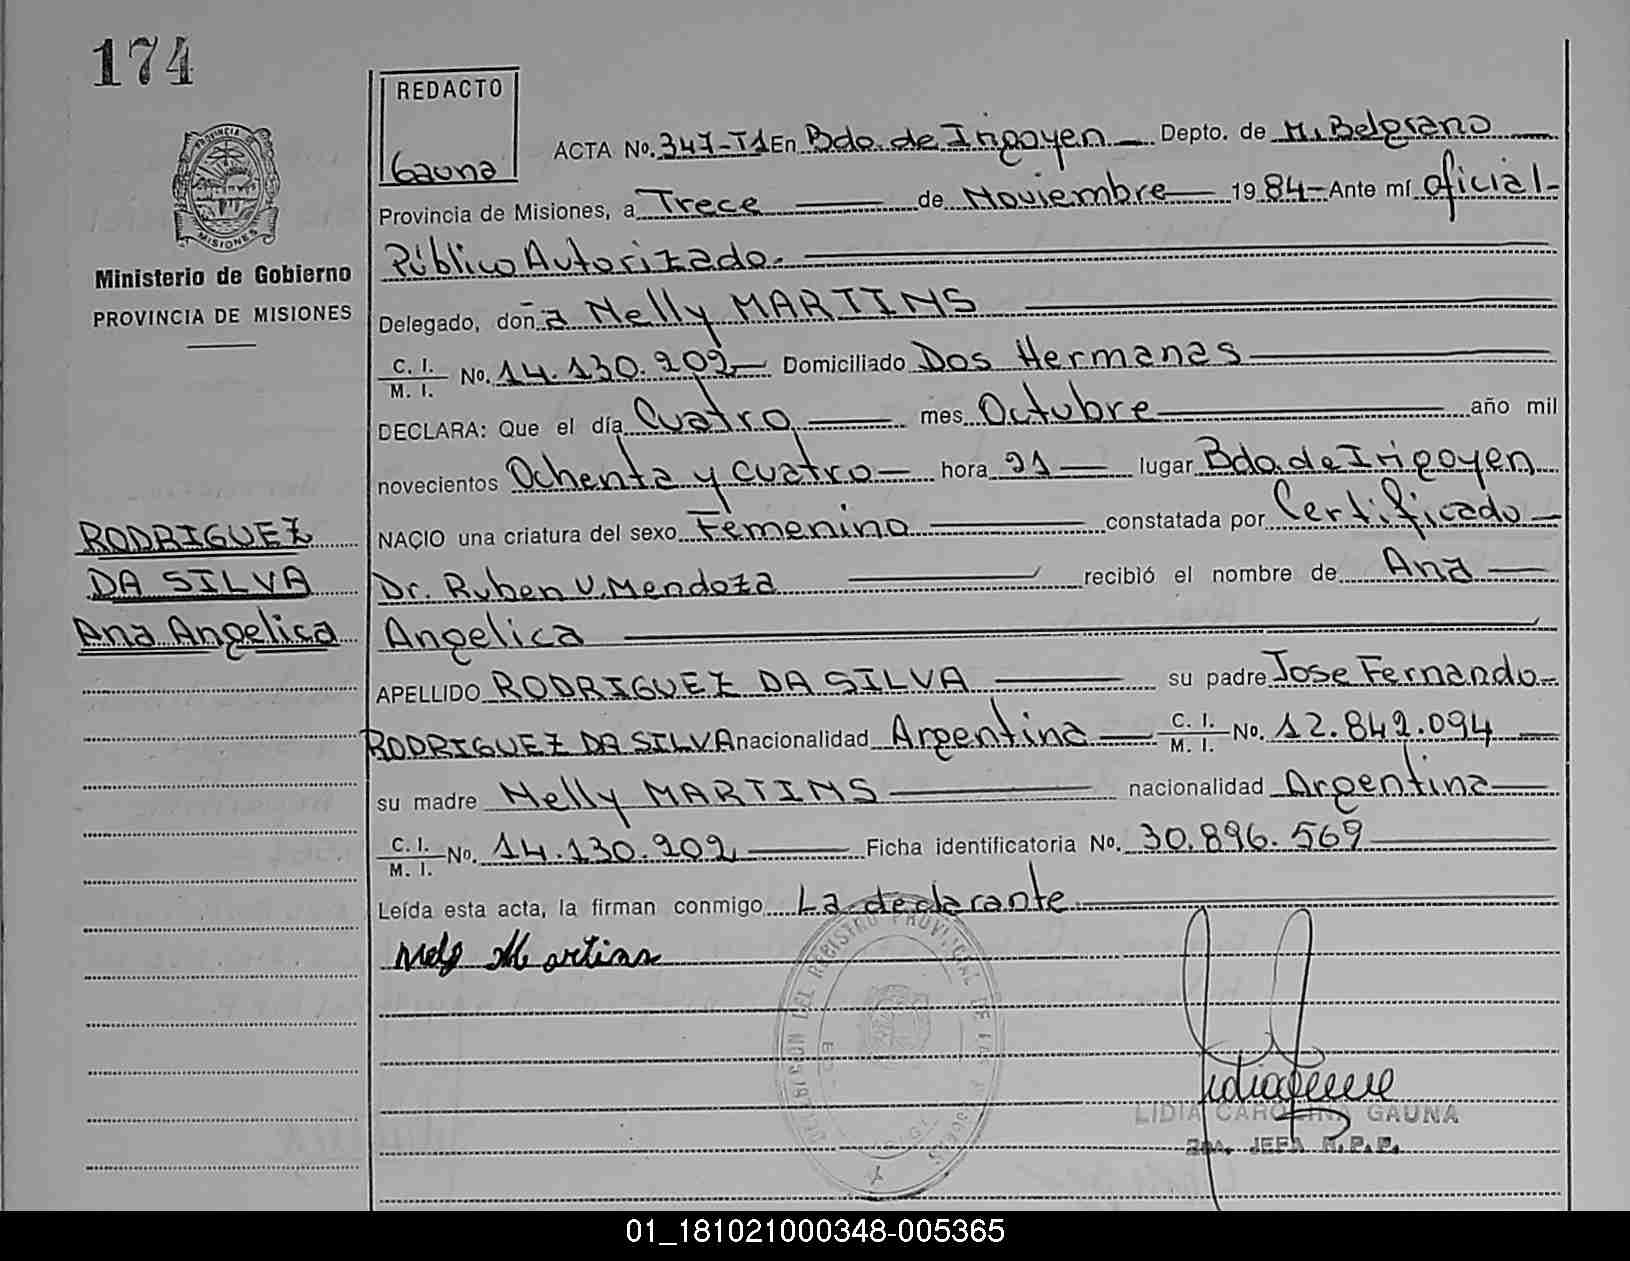 174
REDACTO
Gauna
PROVINCIA DE MISIONES
Ministerio de Gobierno
PROVINCIA DE MISIONES
ACTA No. 347-T1 En Bdo. de Irigoyen Depto. de M. Belgrano
Provincia de Misiones, a Trece de Noviembre 1984 Ante mí oficial
Público Autorizado.
Delegado, don a Nelly MARTINS
C. I. M. I. No. 14.130.202 Domiciliado Dos Hermanas
DECLARA: Que el día Cuatro mes Octubre año mil
novecientos Ochenta y Cuatro hora 21 lugar Bdo. de Irigoyen
NACIO una criatura del sexo Femenino constatada por Certificado
Dr. Ruben V. Mendoza recibió el nombre de Ana
Angelica
APELLIDO RODRIGUEZ DA SILVA su padre Jose Fernando
RODRIGUEZ DA SILVA nacionalidad Argentina C. I. M. I. No. 12.842.094
su madre Nelly MARTINS nacionalidad Argentina
C. I. M. I. No. 14.130.202 Ficha identificatoria No. 30.896.569
Leída esta acta, la firman conmigo La declarante
RODRIGUEZ
DA SILVA
Ana Angelica
Martins
REGISTRO PROVINCIAL DE LAS
LIDIA CAROLINA GAUNA
JEFA R.P.P.
01_181021000348-005365